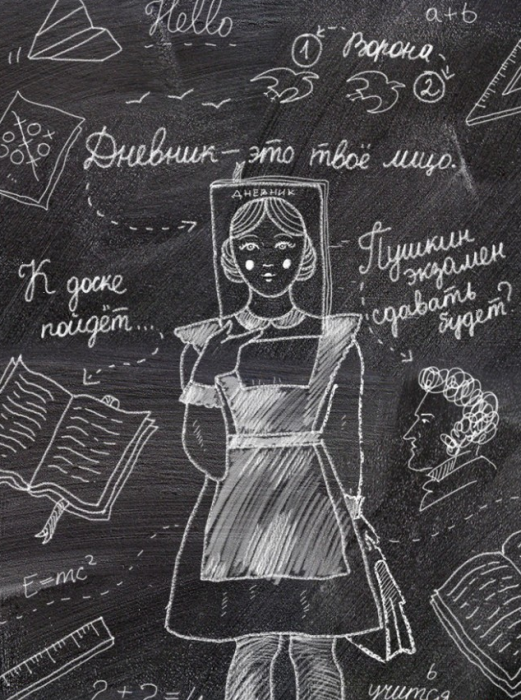 a+b
Hello
1 Ворона
2
Дневник – это твоё лицо.
ДНЕВНИК
Пушкин
экзамен
сдавать
будет?
К доске
пойдёт...
E=mc²
2+2=4
ь
учится